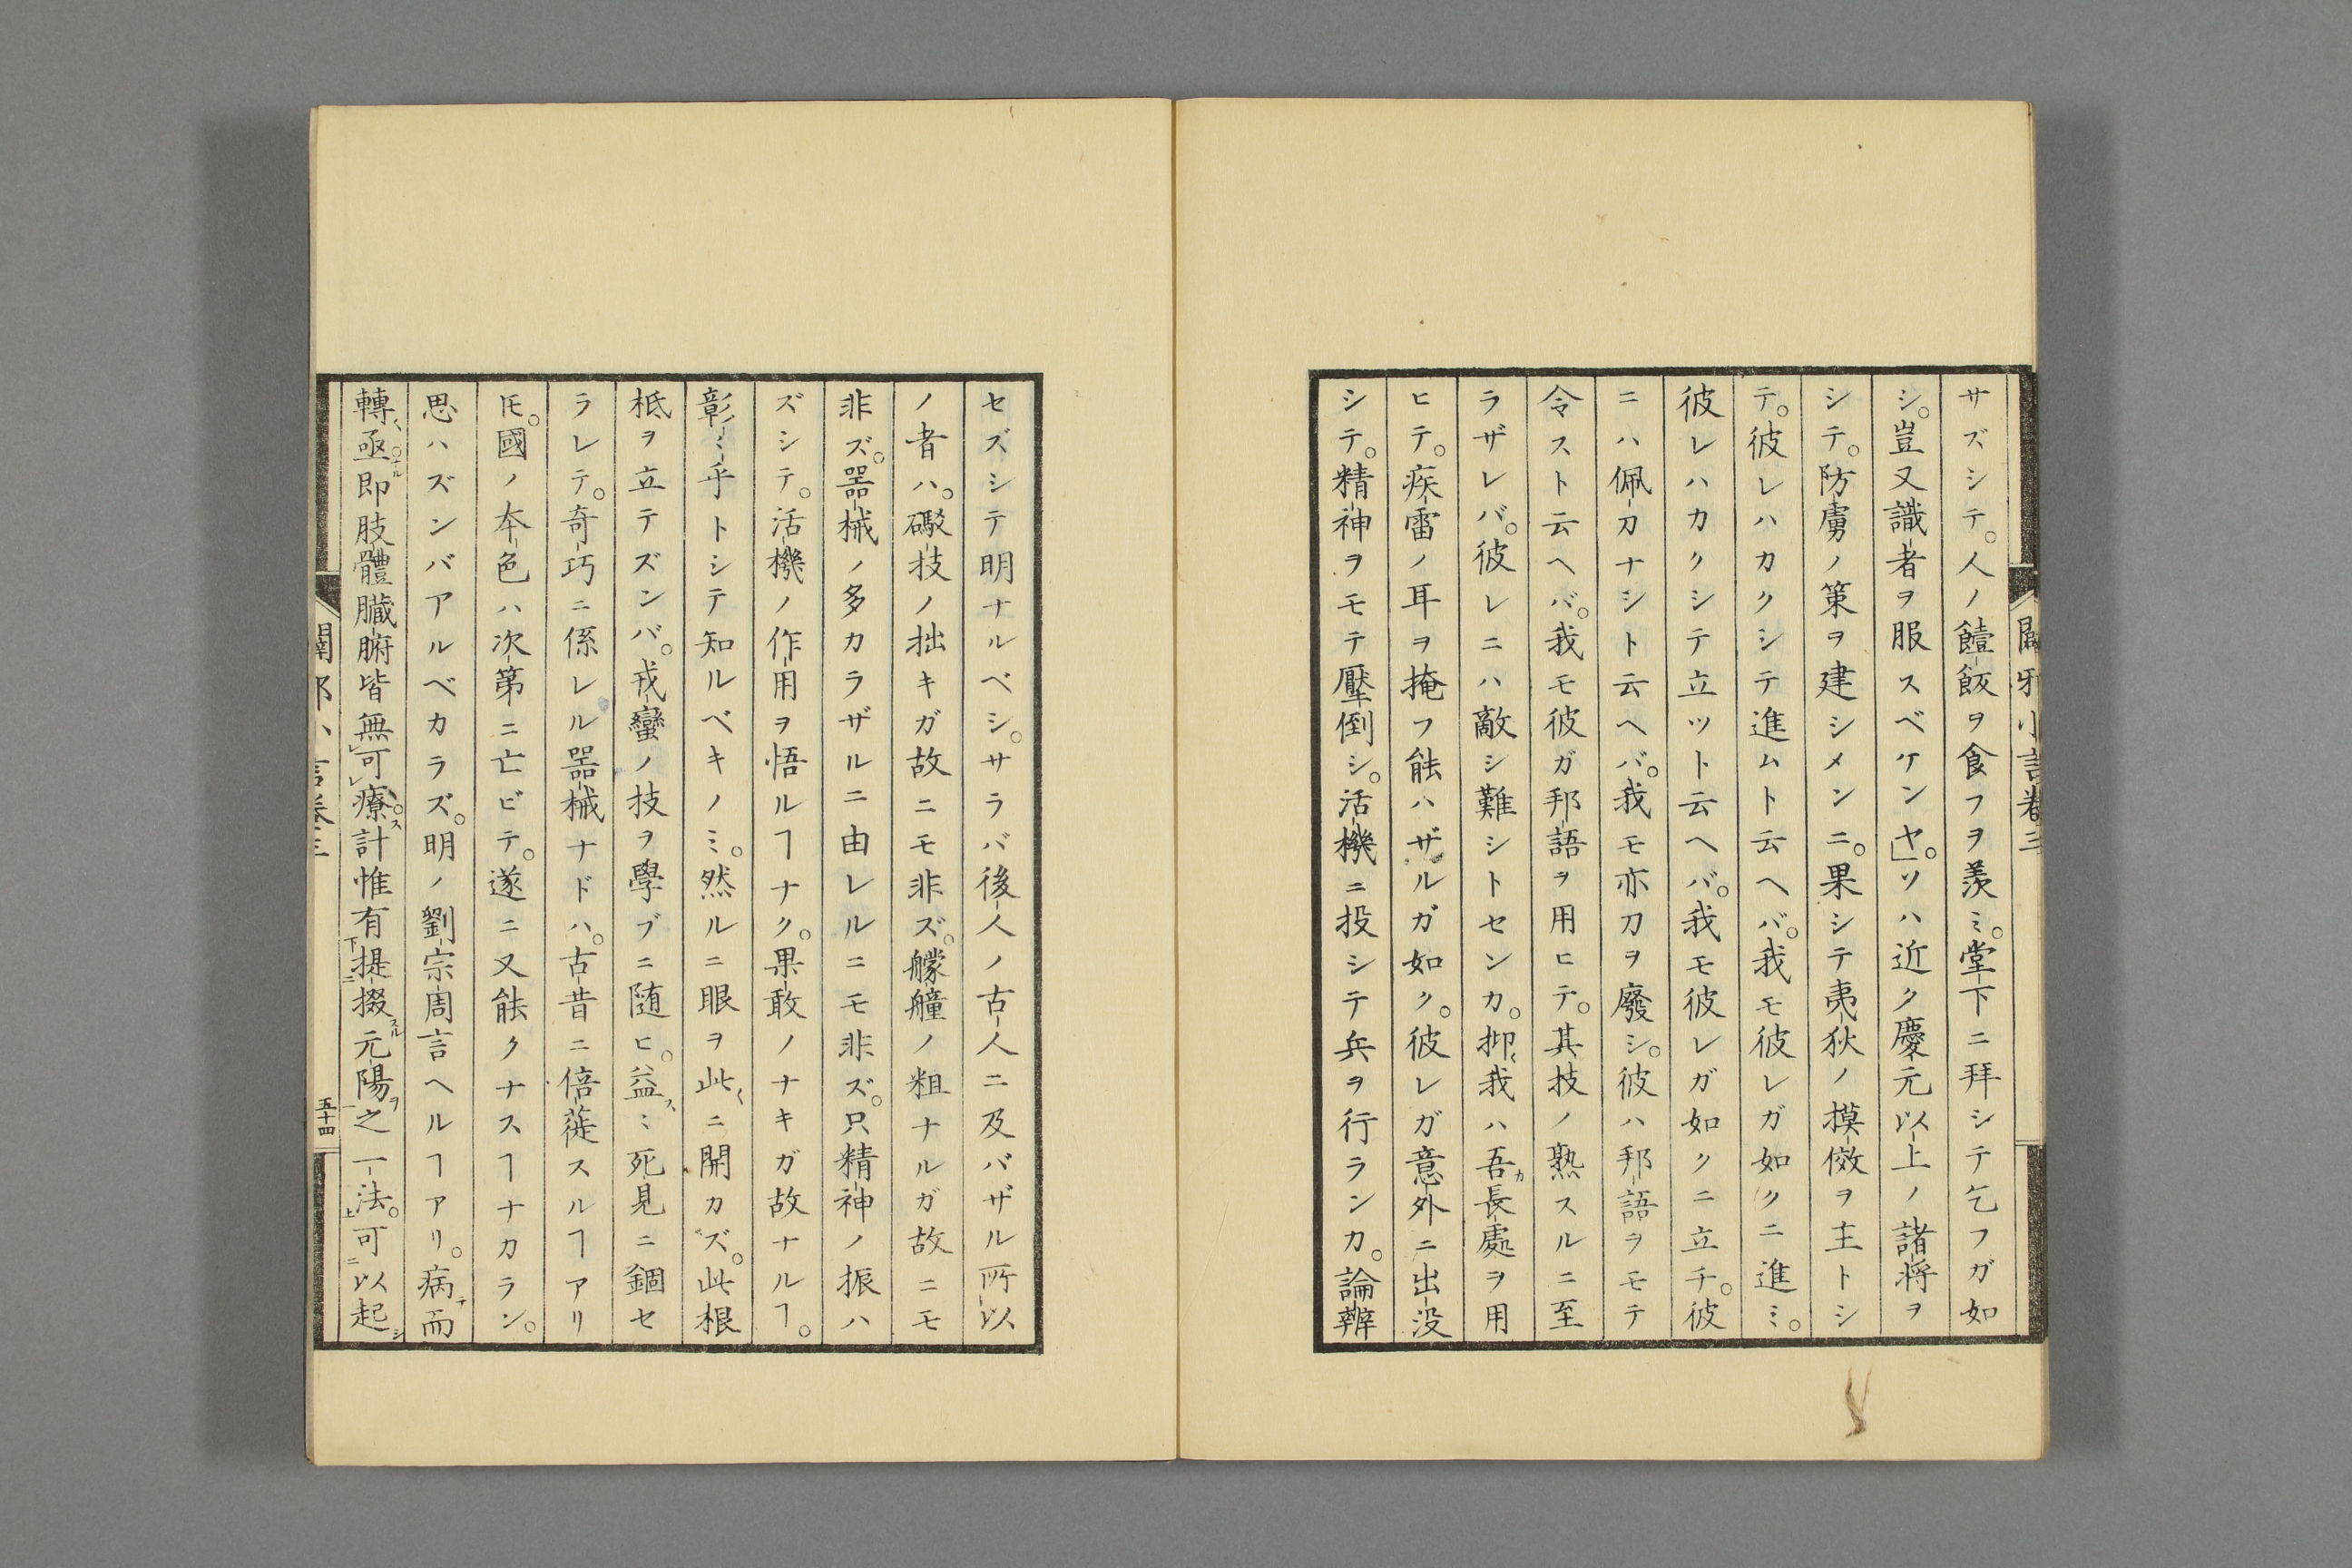 闢邪小言卷三
サズシテ。人ノ饐飯ヲ食フヲ羨ミ。堂下ニ拜シテ乞フガ如
シ。豈又識者ヲ服スベケンヤ。」ソハ近ク慶元以上ノ諸将ヲ
シテ。防虜ノ策ヲ建シメンニ。果シテ夷狄ノ摸傚ヲ主トシ
テ。彼レハカクシテ進ムト云ヘバ。我モ彼レガ如クニ進ミ。
彼レハカクシテ立ツト云ヘバ。我モ彼レガ如クニ立チ。彼
ニハ佩刀ナシト云ヘバ。我モ亦刀ヲ廢シ。彼ハ邦語ヲモテ
令スト云ヘバ。我モ彼ガ邦語ヲ用ヒテ。其技ノ熟スルニ至
ラザレバ。彼レニハ敵シ難シトセンカ。抑〻我ハ吾カ長處ヲ用
ヒテ。疾雷ノ耳ヲ掩フ能ハザルガ如ク。彼レガ意外ニ出没
シテ。精神ヲモテ壓倒シ。活機ニ投シテ兵ヲ行ランカ。論辯
セズシテ明ナルベシ。サラバ後人ノ古人ニ及バザル所以
ノ者ハ。礮技ノ拙キガ故ニモ非ズ。艨艟ノ粗ナルガ故ニモ
非ズ。器械ノ多カラザルニ由レルニモ非ズ。只精神ノ振ハ
ズシテ。活機ノ作用ヲ悟ルヿナク。果敢ノナキガ故ナルヿ。
彰ミ乎トシテ知ルベキノミ。然ルニ眼ヲ此〻ニ開カズ。此根
柢ヲ立テズンバ。戎蠻ノ技ヲ學ブニ随ヒ。益〻ミ死見ニ錮セ
ラレテ。奇巧ニ係レル器械ナドハ。古昔ニ倍蓰スルヿアリ
𪜈。國ノ本色ハ次第ニ亡ビテ。遂ニ又能クナスヿナカラン。
思ハズンバアルベカラズ。明ノ劉宗周言ヘルヿアリ。病テ而
轉〻亟ナル。即肢體臟腑皆無レ可レ療ス。計惟有下提二掇スル元陽ヲ一之一法。上可二以起シ
闢邪小言卷三
五十四